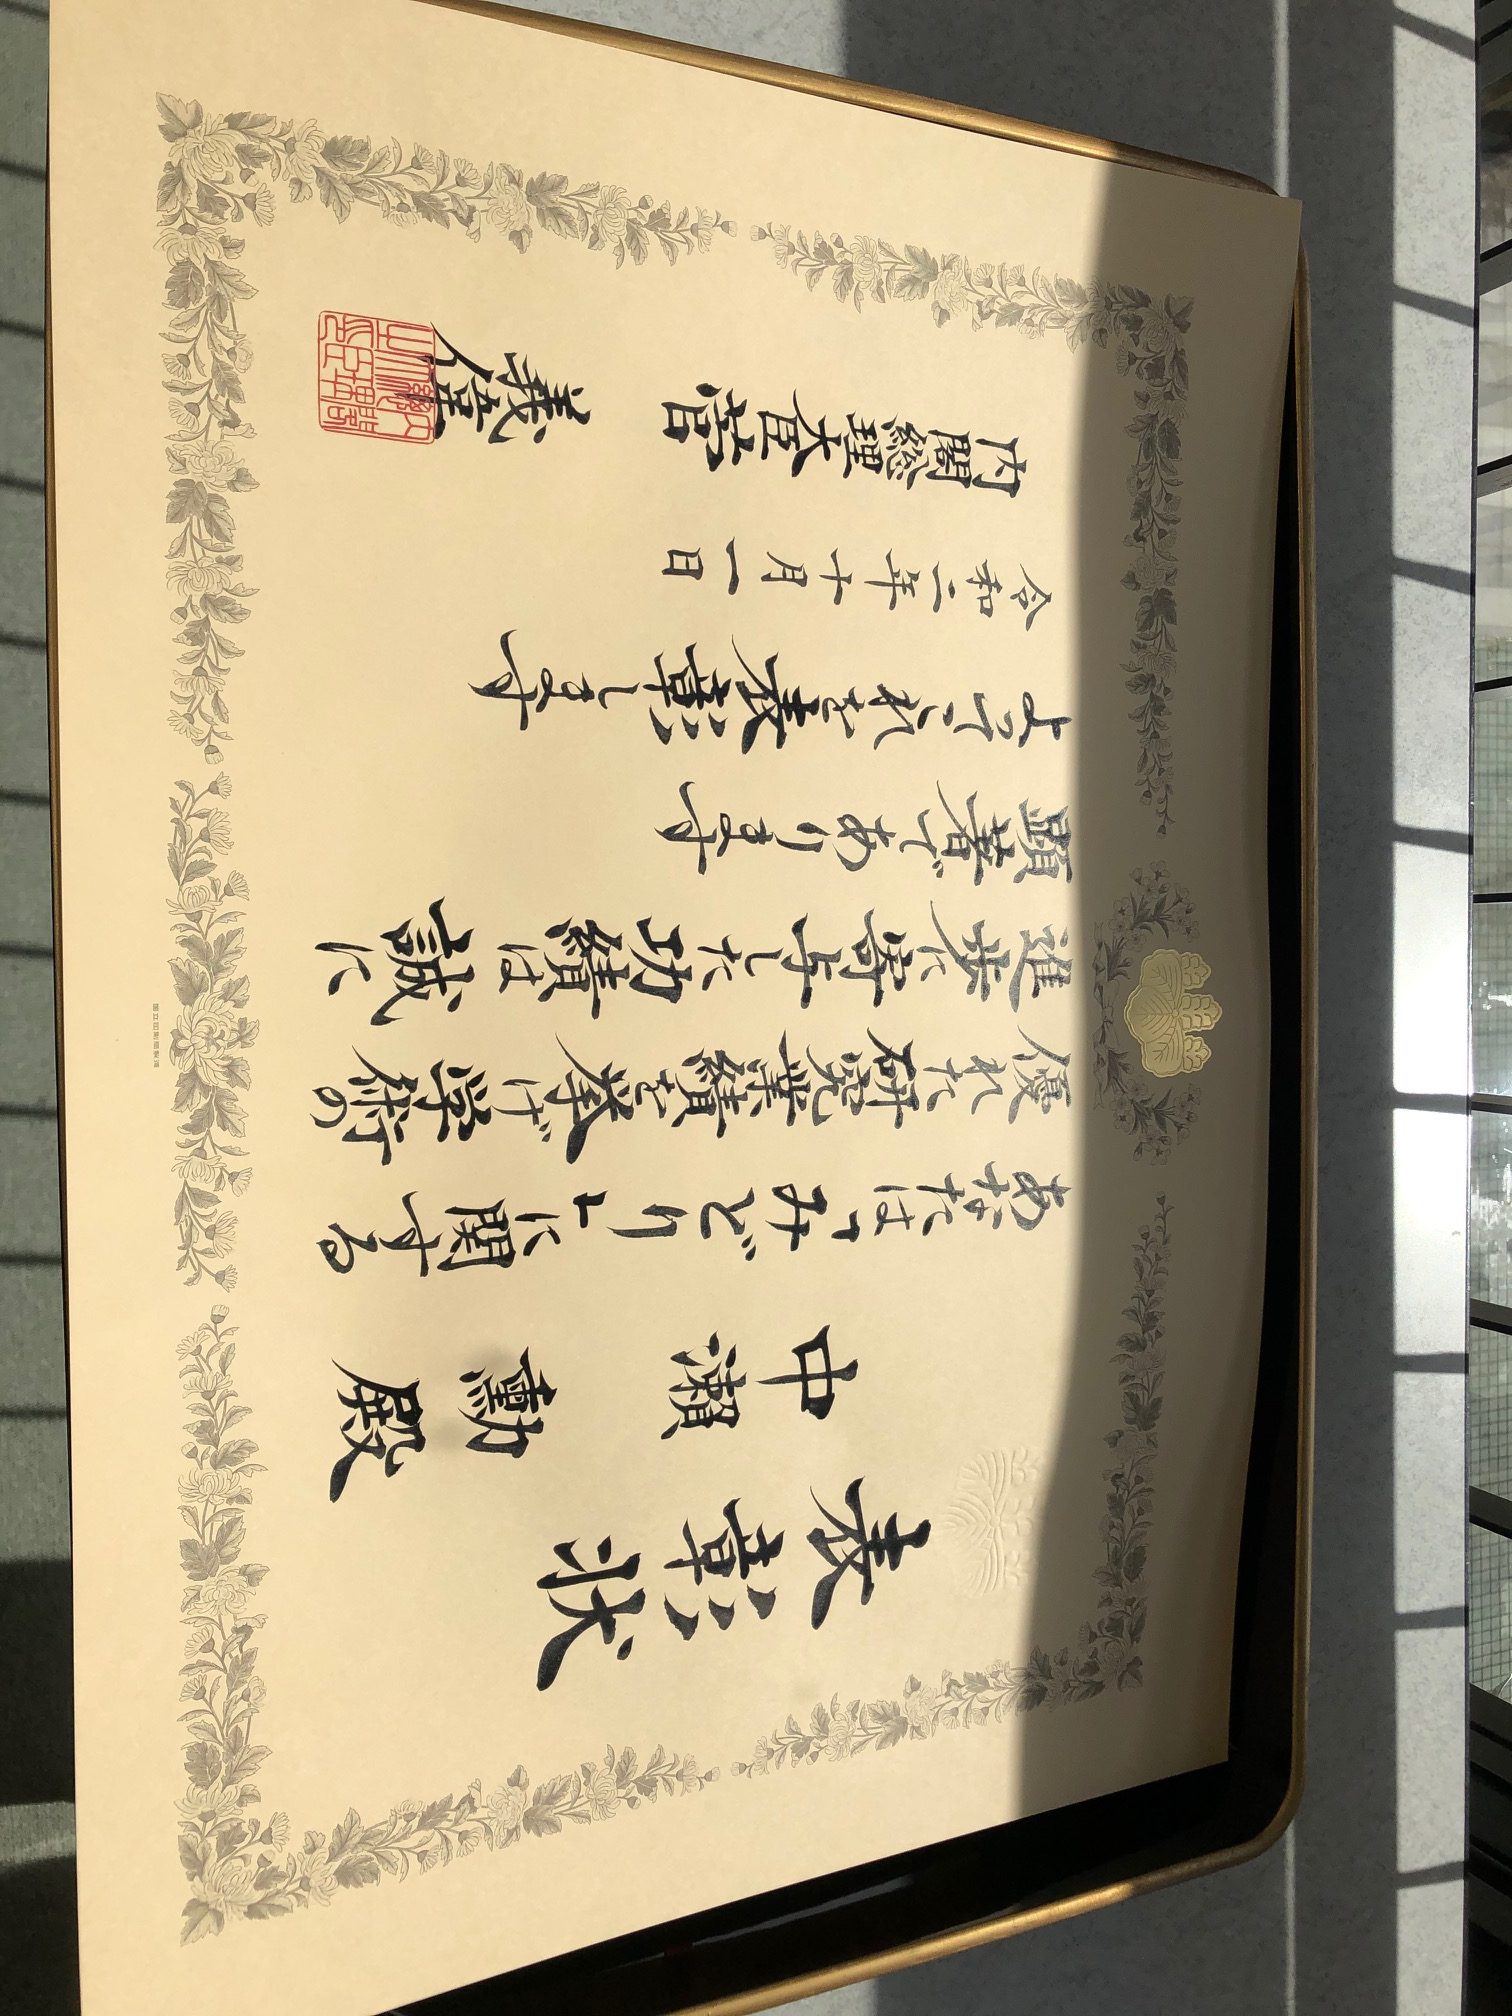 表彰状
中瀬 勳 殿
あなたは「みどり」に関する
優れた研究業績を挙げ学術の
進歩に寄与した功績は誠に
顕著であります
よってこれを表彰します
令和二年十月一日
内閣総理大臣 菅 義偉
内閣総理大臣印
国立印刷局製造